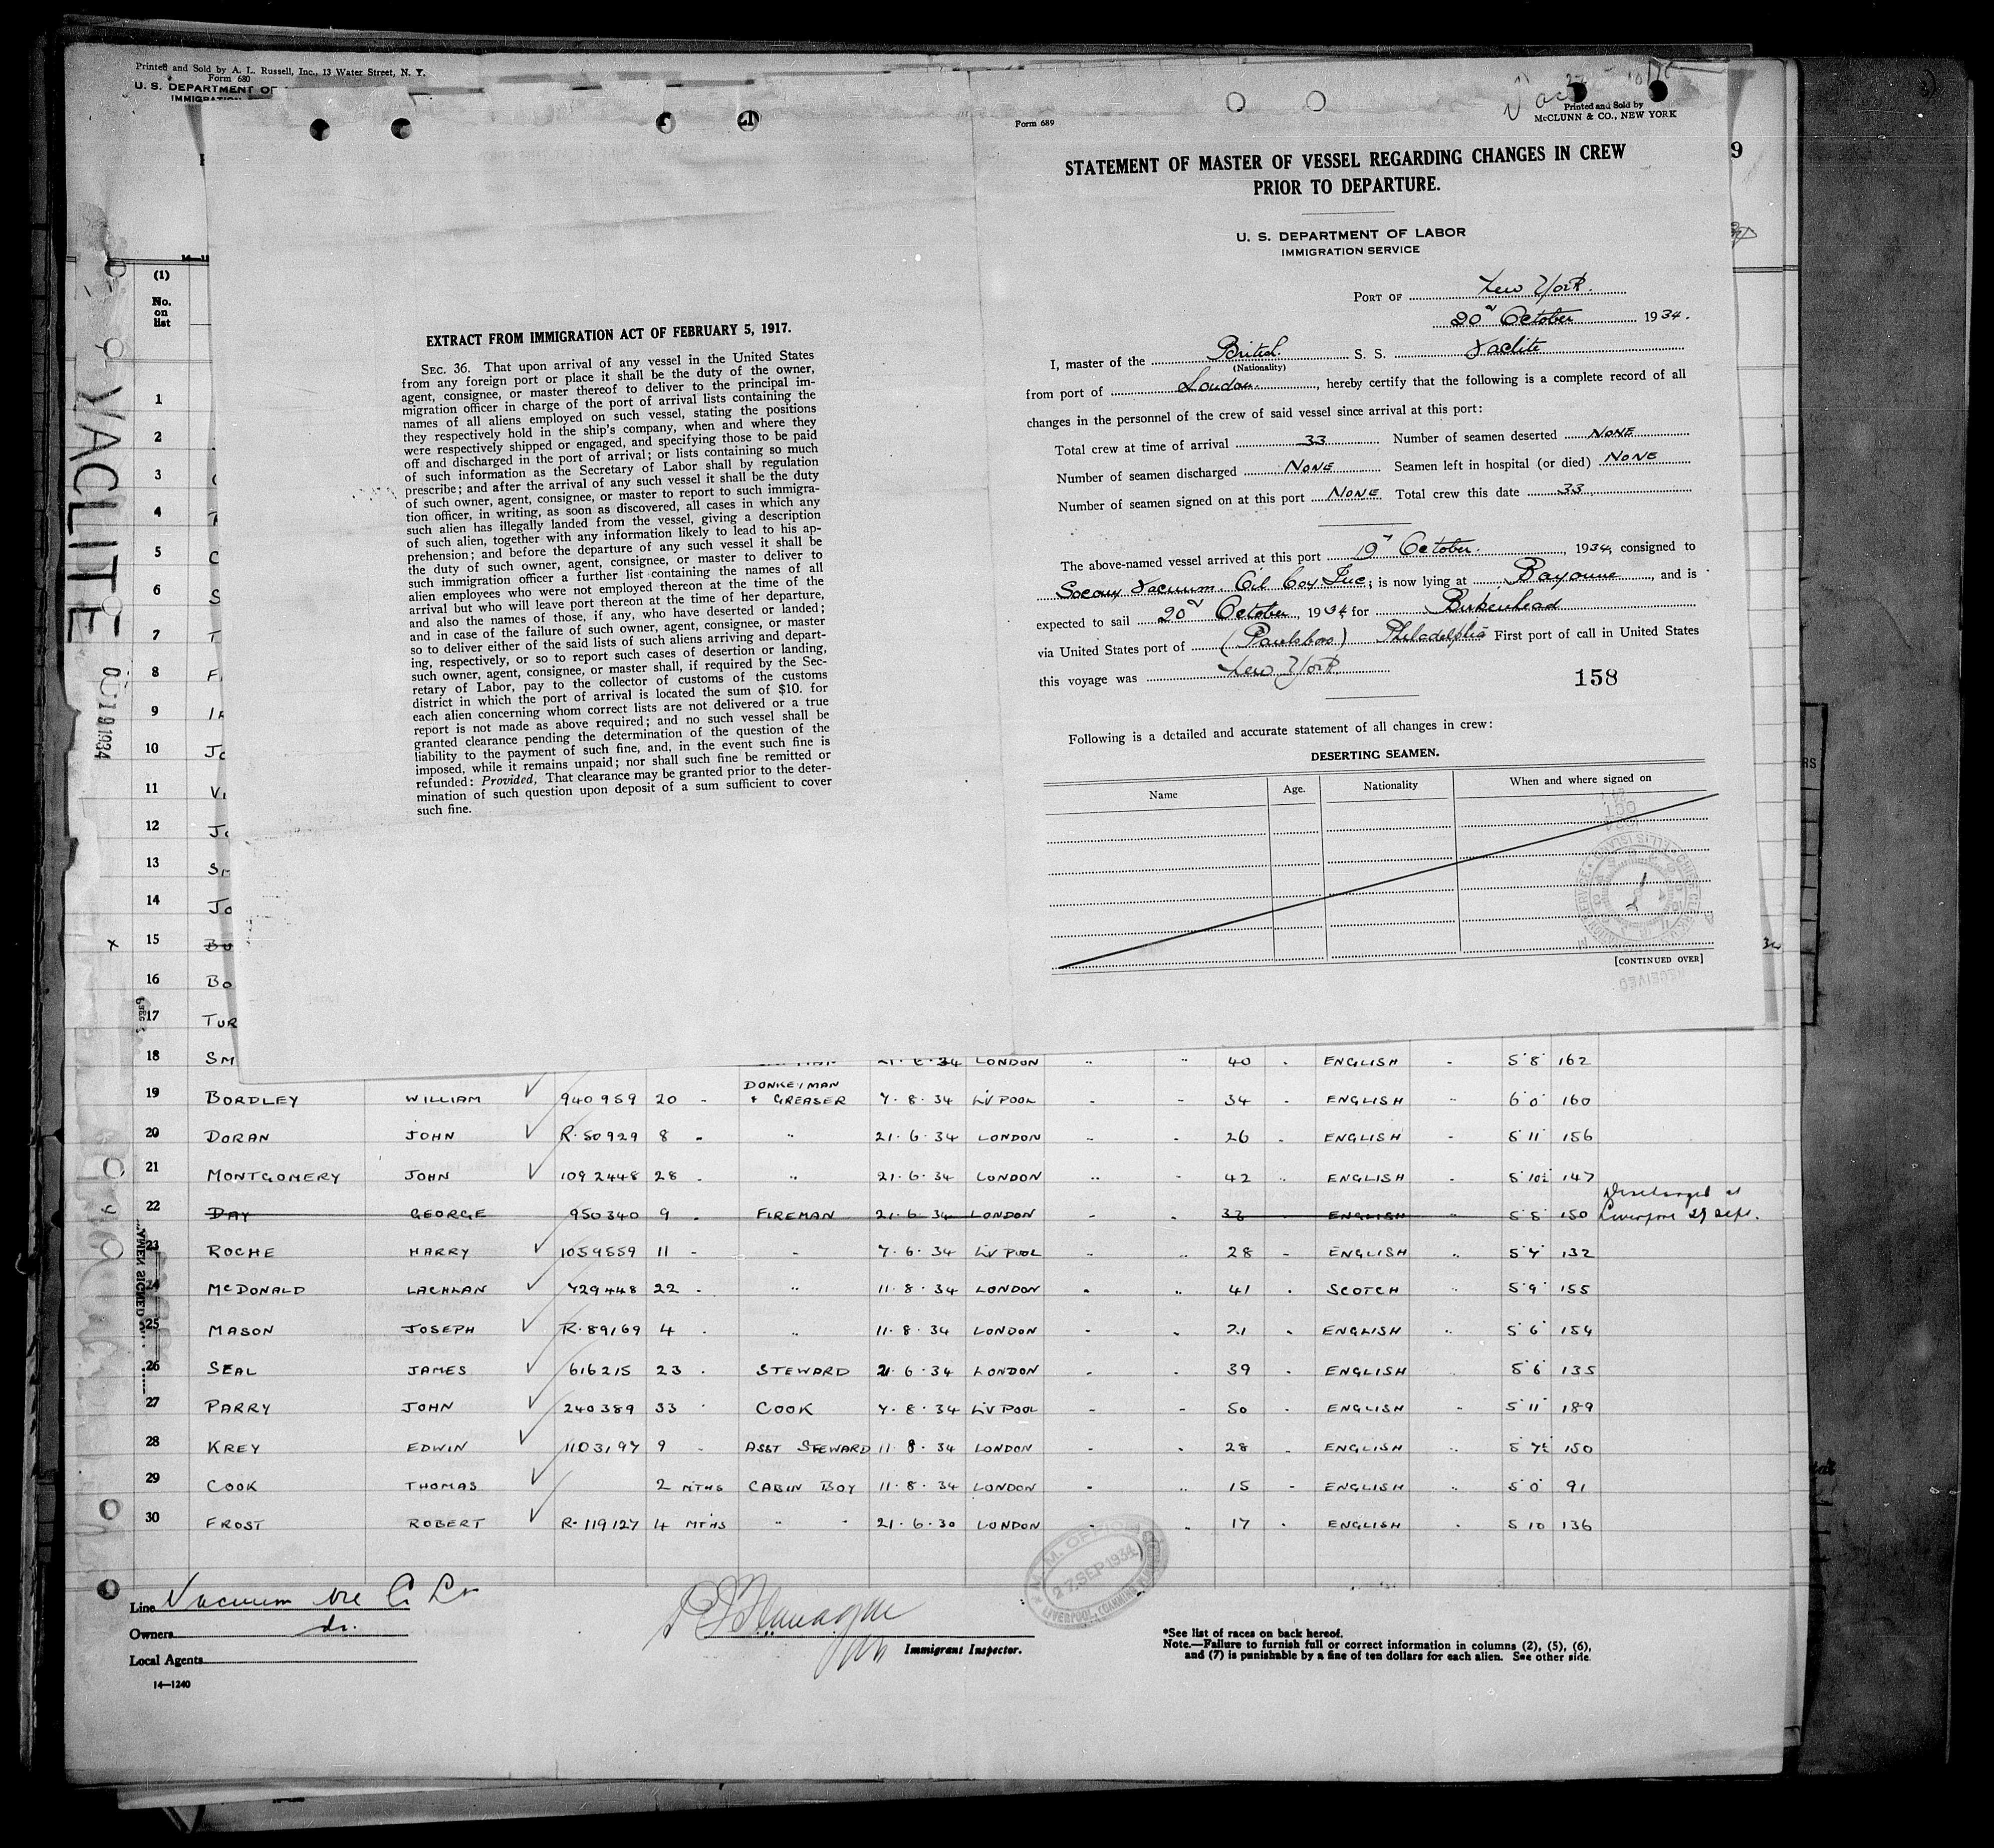 Printed and Sold by A. L. Russell, Inc., 13 Water Street, N. Y.
Form 680
U. S. DEPARTMENT OF
IMMIGRATION
(1)
No.
on
list
VACLITE
OCT 19 1934
1
2
3
4
5
6
7
8
9
10
11
12
13
14
15
16
17
EXTRACT FROM IMMIGRATION ACT OF FEBRUARY 5, 1917.
SEC. 36. That upon arrival of any vessel in the United States
from any foreign port or place it shall be the duty of the owner,
agent, consignee, or master thereof to deliver to the principal im-
migration officer in charge of the port of arrival lists containing the
names of all aliens employed on such vessel, stating the positions
they respectively hold in the ship's company, when and where they
were respectively shipped or engaged, and specifying those to be paid
off and discharged in the port of arrival; or lists containing so much
of such information as the Secretary of Labor shall by regulation
prescribe; and after the arrival of any such vessel it shall be the duty
of such owner, agent, consignee, or master to report to such immigra-
tion officer, in writing, as soon as discovered, all cases in which any
such alien has illegally landed from the vessel, giving a description
of such alien, together with any information likely to lead to his ap-
prehension; and before the departure of any such vessel it shall be
the duty of such owner, agent, consignee, or master to deliver to
such immigration officer a further list containing the names of all
alien employees who were not employed thereon at the time of the
arrival but who will leave port thereon at the time of her departure,
and also the names of those, if any, who have deserted or landed;
and in case of the failure of such owner, agent, consignee, or master
so to deliver either of the said lists of such aliens arriving and depart-
ing, respectively, or so to report such cases of desertion or landing,
such owner, agent, consignee, or master shall, if required by the Sec-
retary of Labor, pay to the collector of customs of the customs
district in which the port of arrival is located the sum of $10. for
each alien concerning whom correct lists are not delivered or a true
report is not made as above required; and no such vessel shall be
granted clearance pending the determination of the question of the
liability to the payment of such fine, and, in the event such fine is
imposed, while it remains unpaid; nor shall such fine be remitted or
refunded: Provided, That clearance may be granted prior to the deter-
mination of such question upon deposit of a sum sufficient to cover
such fine.
Form 689
Printed and Sold by
McCLUNN & CO., NEW YORK
STATEMENT OF MASTER OF VESSEL REGARDING CHANGES IN CREW
PRIOR TO DEPARTURE.
U. S. DEPARTMENT OF LABOR
IMMIGRATION SERVICE
PORT OF New York.
20th October 1934.
I, master of the British S. S. Vaclite
(Nationality)
from port of London, hereby certify that the following is a complete record of all
changes in the personnel of the crew of said vessel since arrival at this port:
Total crew at time of arrival 33 Number of seamen deserted NONE
Number of seamen discharged NONE Seamen left in hospital (or died) NONE
Number of seamen signed on at this port NONE Total crew this date 33
The above-named vessel arrived at this port 19th October, 1934, consigned to
Socony Vacuum Oil Coy. Inc; is now lying at Bayonne, and is
expected to sail 20th October, 1934 for Birkenhead
via United States port of (Paulsboro) Philadelphia First port of call in United States
this voyage was New York
158
Following is a detailed and accurate statement of all changes in crew:
DESERTING SEAMEN.
Name Age. Nationality When and where signed on
[CONTINUED OVER]
18 SM 21. 6. 34 LONDON " " 40 " ENGLISH " 5' 8" 162
19 BORDLEY WILLIAM 940959 20 " DONKEYMAN & GREASER 7. 8. 34 LIVPOOL " " 34 " ENGLISH " 6' 0" 160
20 DORAN JOHN R. 50929 8 " " 21. 6. 34 LONDON " " 26 " ENGLISH " 5' 11" 156
21 MONTGOMERY JOHN 1092448 28 " " 21. 6. 34 LONDON " " 42 " ENGLISH " 5' 10½ 147
22 DAY GEORGE 950340 9 " FIREMAN 21. 6. 34 LONDON " " 33 " ENGLISH " 5' 5" 150 Discharged at Liverpool 29 Sept.
23 ROCHE HARRY 1059559 11 " " 7. 6. 34 LIVPOOL " " 28 " ENGLISH " 5' 7" 132
24 McDONALD LACHLAN 729448 22 " " 11. 8. 34 LONDON " " 41 " SCOTCH " 5' 9" 155
25 MASON JOSEPH R. 89169 4 " " 11. 8. 34 LONDON " " 21 " ENGLISH " 5' 6" 154
26 SEAL JAMES 616215 23 " STEWARD 21. 6. 34 LONDON " " 39 " ENGLISH " 5' 6" 135
27 PARRY JOHN 240389 33 " COOK 7. 8. 34 LIVPOOL " " 50 " ENGLISH " 5' 11" 189
28 KREY EDWIN 1103197 9 " ASST STEWARD 11. 8. 34 LONDON " " 28 " ENGLISH " 5' 7½ 150
29 COOK THOMAS 2 MTHS CABIN BOY 11. 8. 34 LONDON " " 15 " ENGLISH " 5' 0" 91
30 FROST ROBERT R. 119127 4 MTHS " " 21. 6. 30 LONDON " " 17 " ENGLISH " 5' 10 136
27 SEP 1934
LIVERPOOL
Line Vacuum Oil Co Ld
Owners do.
Local Agents
14—1240
Immigrant Inspector.
*See list of races on back hereof.
Note.—Failure to furnish full or correct information in columns (2), (5), (6),
and (7) is punishable by a fine of ten dollars for each alien. See other side.